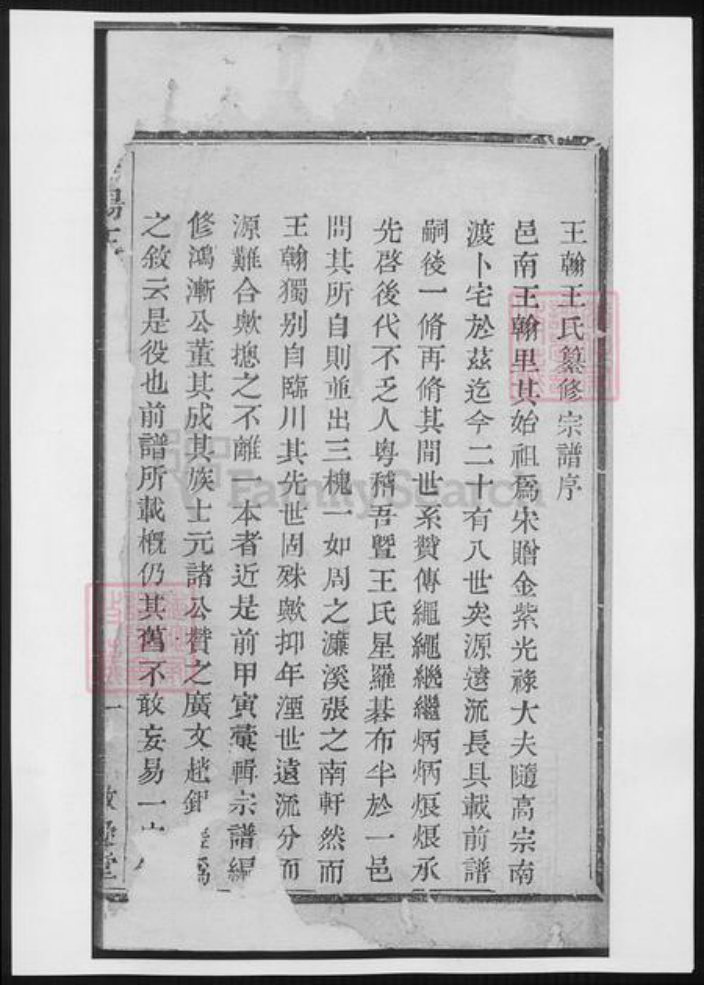 王翰王氏纂修宗譜序
邑南王翰里其始祖爲宋贈金紫光祿大夫隨高宗南
渡卜宅於茲迄今二十有八世矣源遠流長具載前譜
嗣後一脩再脩其閒世系贊傳繩繩繼繼炳炳烺烺承
先啓後代不乏人粤稽吾暨王氏星羅碁布半於一邑
問其所自則並出三槐一如周之濂溪張之南軒然而
王翰獨别自臨川其先世固殊歟抑年湮世遠流分而
源難合歟摠之不離一本者近是前甲寅彚輯宗譜編
修鴻漸公董其成其族士元諸公贊之廣文趙 爲
之敘云是役也前譜所載概仍其舊不敢妄易一
陽王
一
堂
FamilySearch